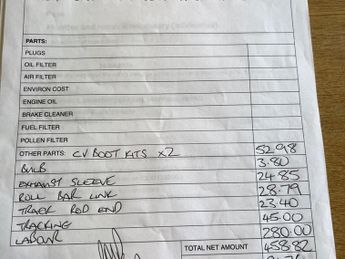 PARTS:
PLUGS
OIL FILTER
AIR FILTER
ENVIRON COST
ENGINE OIL
BRAKE CLEANER
FUEL FILTER
POLLEN FILTER
OTHER PARTS: CV BOOT KITS x2 52.98
BULB 3.80
EXHAUST SLEEVE 24.85
ROLL BAR LINK 28.79
TRACK ROD END 23.40
TRACKING 45.00
LABOUR 280.00
TOTAL NET AMOUNT 458.82